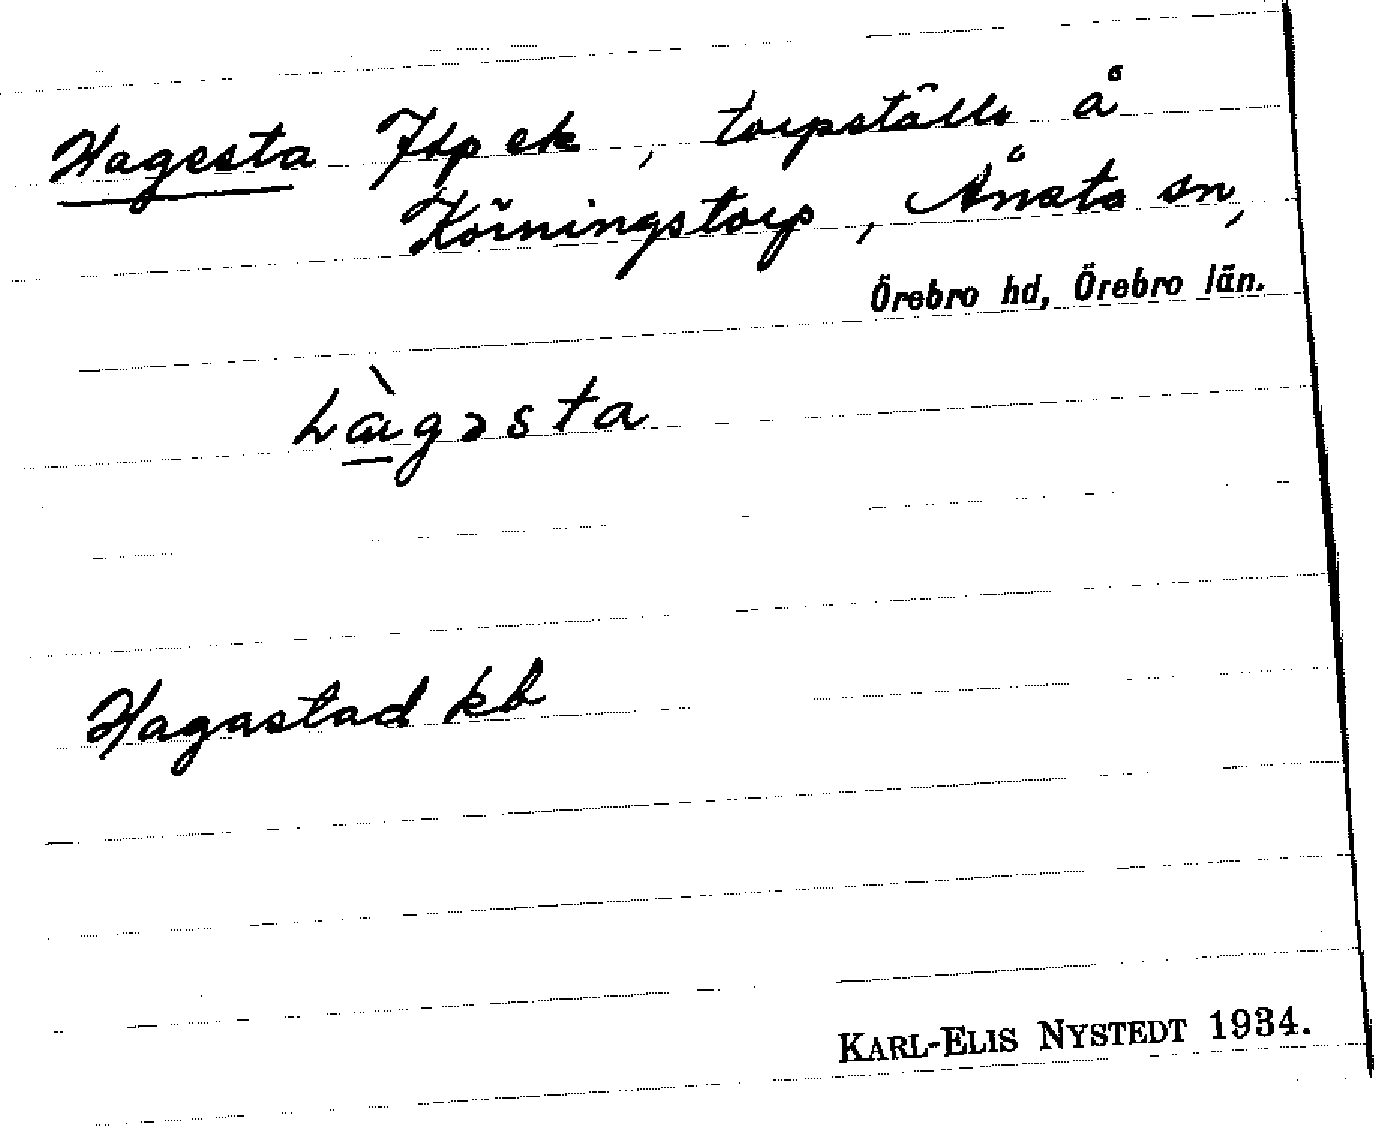 Hagesta Jdp ek, torpställe å
Körningstorp, Ånsta sn,
Örebro hd, Örebro län.
hàgəsta
Hagastad kb
KARL-ELIS NYSTEDT 1934.